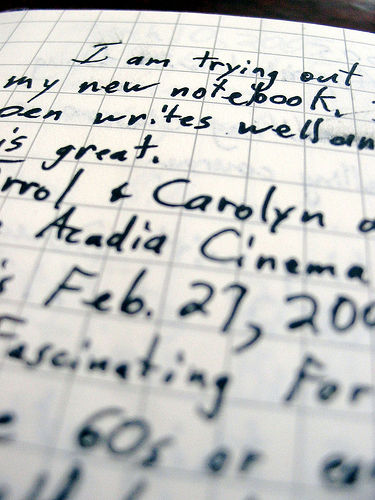 I am trying out
my new notebook.
pen writes well an
is great.
rrol & Carolyn
Acadia Cinema
is Feb. 27, 200
Fascinating For
60s or